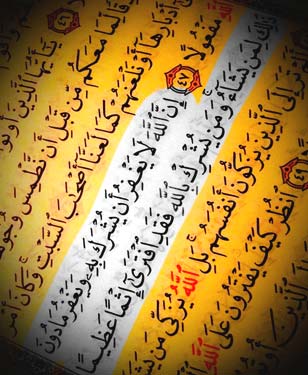 يَٰٓأَيُّهَا ٱلَّذِينَ أُوتُوا
لِّمَا مَعَكُم مِّن قَبْلِ أَن نَّطْمِسَ وُجُو
أَدْبَارِهَآ أَوْ نَلْعَنَهُمْ كَمَا لَعَنَّآ أَصْحَٰبَ ٱلسَّبْتِ وَكَانَ أَمْر
ٱللَّهِ مَفْعُولًا ٤٧ إِنَّ ٱللَّهَ لَا يَغْفِرُ أَن يُشْرَكَ بِهِۦ وَيَغْفِرُ مَا دُونَ
ذَٰلِكَ لِمَن يَشَآءُ وَمَن يُشْرِكْ بِٱللَّهِ فَقَدِ ٱفْتَرَىٰٓ إِثْمًا عَظِيمًا
تَرَ إِلَى ٱلَّذِينَ يُزَكُّونَ أَنفُسَهُم بَلِ ٱللَّهُ يُزَكِّي مَن يَش
ٱنظُرْ كَيْفَ يَفْتَرُونَ عَلَى ٱللَّهِ
ٱلَّذِينَ